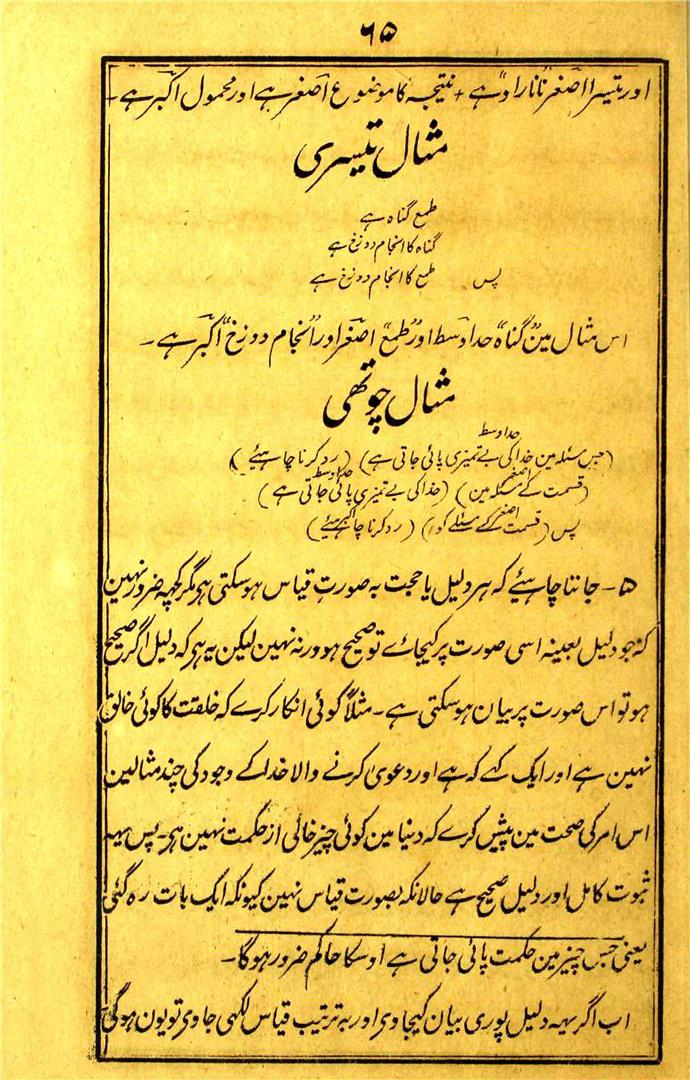 ۶۵
اور تیسرا اصغر "نانا راد" ہے + نتیجہ کا موضوع اصغر ہے اور محمول اکبر ہے -
مثال تیسری
طمع گناہ ہے
گناہ کا انجام دوزخ ہے
پس طمع کا انجام دوزخ ہے
اس مثال مین "گناہ" حد اوسط اور "طمع" اصغر اور "انجام دوزخ" اکبر ہے -
مثال چوتھی
حد اوسط
(جس مسئلہ مین خدا کی بے تمیزی پائی جاتی ہے) (رد کرنا چاہیئے)
اصغر حد اوسط
(قسمت کے مسئلہ مین) (خدا کی بے تمیزی پائی جاتی ہے)
اصغر اکبر
پس (قسمت کے مسئلے کو) (رد کرنا چاہیئے)
۵ - جاننا چاہیئے کہ ہر دلیل یا حجت بہ صورتِ قیاس ہو سکتی ہی مگر کچھہ ضرور نہین
کہ جو دلیل بعینہ اسی صورت پر کیجائے تو صحیح ہو ورنہ نہین لیکن یہ ہی کہ دلیل اگر صحیح
ہو تو اس صورت پر بیان ہو سکتی ہے - مثلاً کوئی انکار کرے کہ خلقت کا کوئی خالق
نہین ہے اور ایک کہے کہ ہے اور دعویٰ کرنے والا خدا کے وجود کی چند مثالین
اس امر کی صحت مین پیش کرے کہ دنیا مین کوئی چیز خالی از حکمت نہین ہی - پس یہہ
ثبوت کامل اور دلیل صحیح ہے حالانکہ بصورت قیاس نہین کیونکہ ایک بات رہ گئی
یعنی جس چیز مین حکمت پائی جاتی ہے اوسکا حاکم ضرور ہوگا -
اب اگر یہہ دلیل پوری بیان کیجاوی اور بہ ترتیب قیاس لکھی جاوی تو یون ہوگی